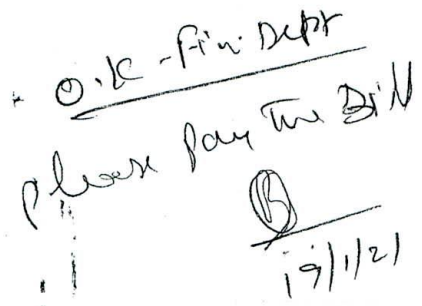 O.K - Fin. Deptt
please pay the Bill
19/1/21